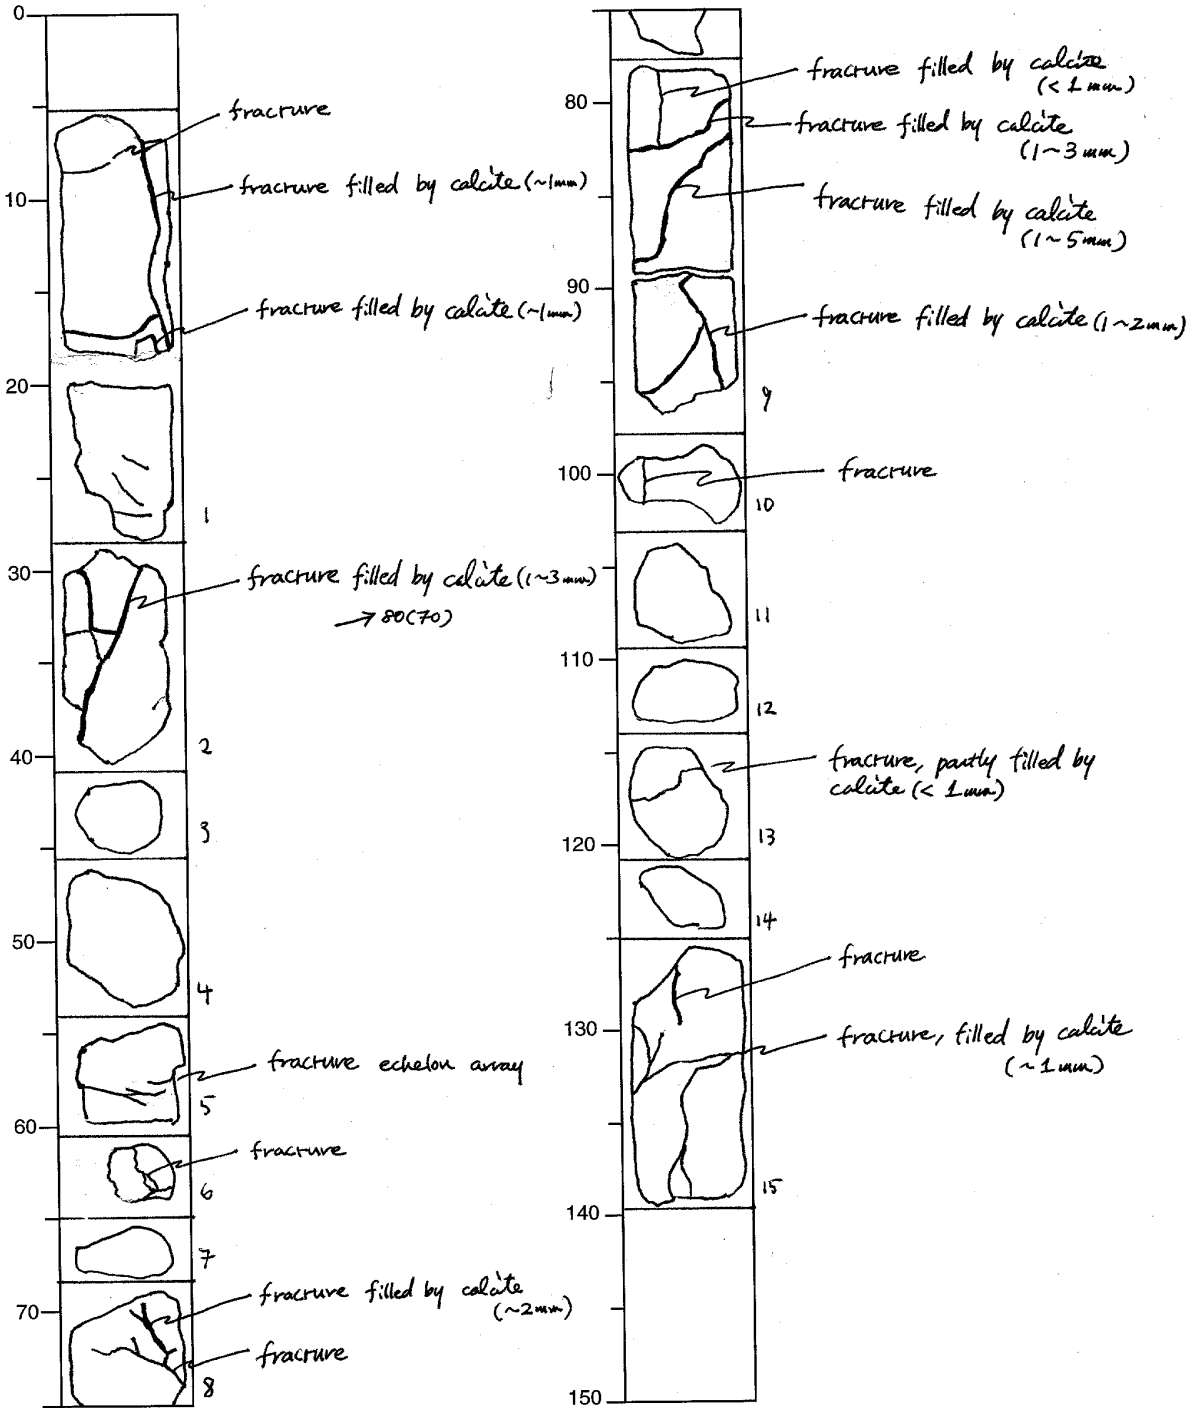 0
fracture
10
fracture filled by calcite (~1mm)
fracture filled by calcite (~1mm)
20
1
30
fracture filled by calcite (1~3mm)
→ 80(70)
2
40
3
50
4
fracture echelon array
5
60
fracture
6
7
70
fracture filled by calcite
(~2mm)
fracture
8
fracture filled by calcite
(<1mm)
80
fracture filled by calcite
(1~3mm)
fracture filled by calcite
(1~5mm)
90
fracture filled by calcite (1~2mm)
9
100
fracture
10
11
110
12
fracture, partly filled by
calcite (<1mm)
13
120
14
fracture
130
fracture, filled by calcite
(~1mm)
15
140
150